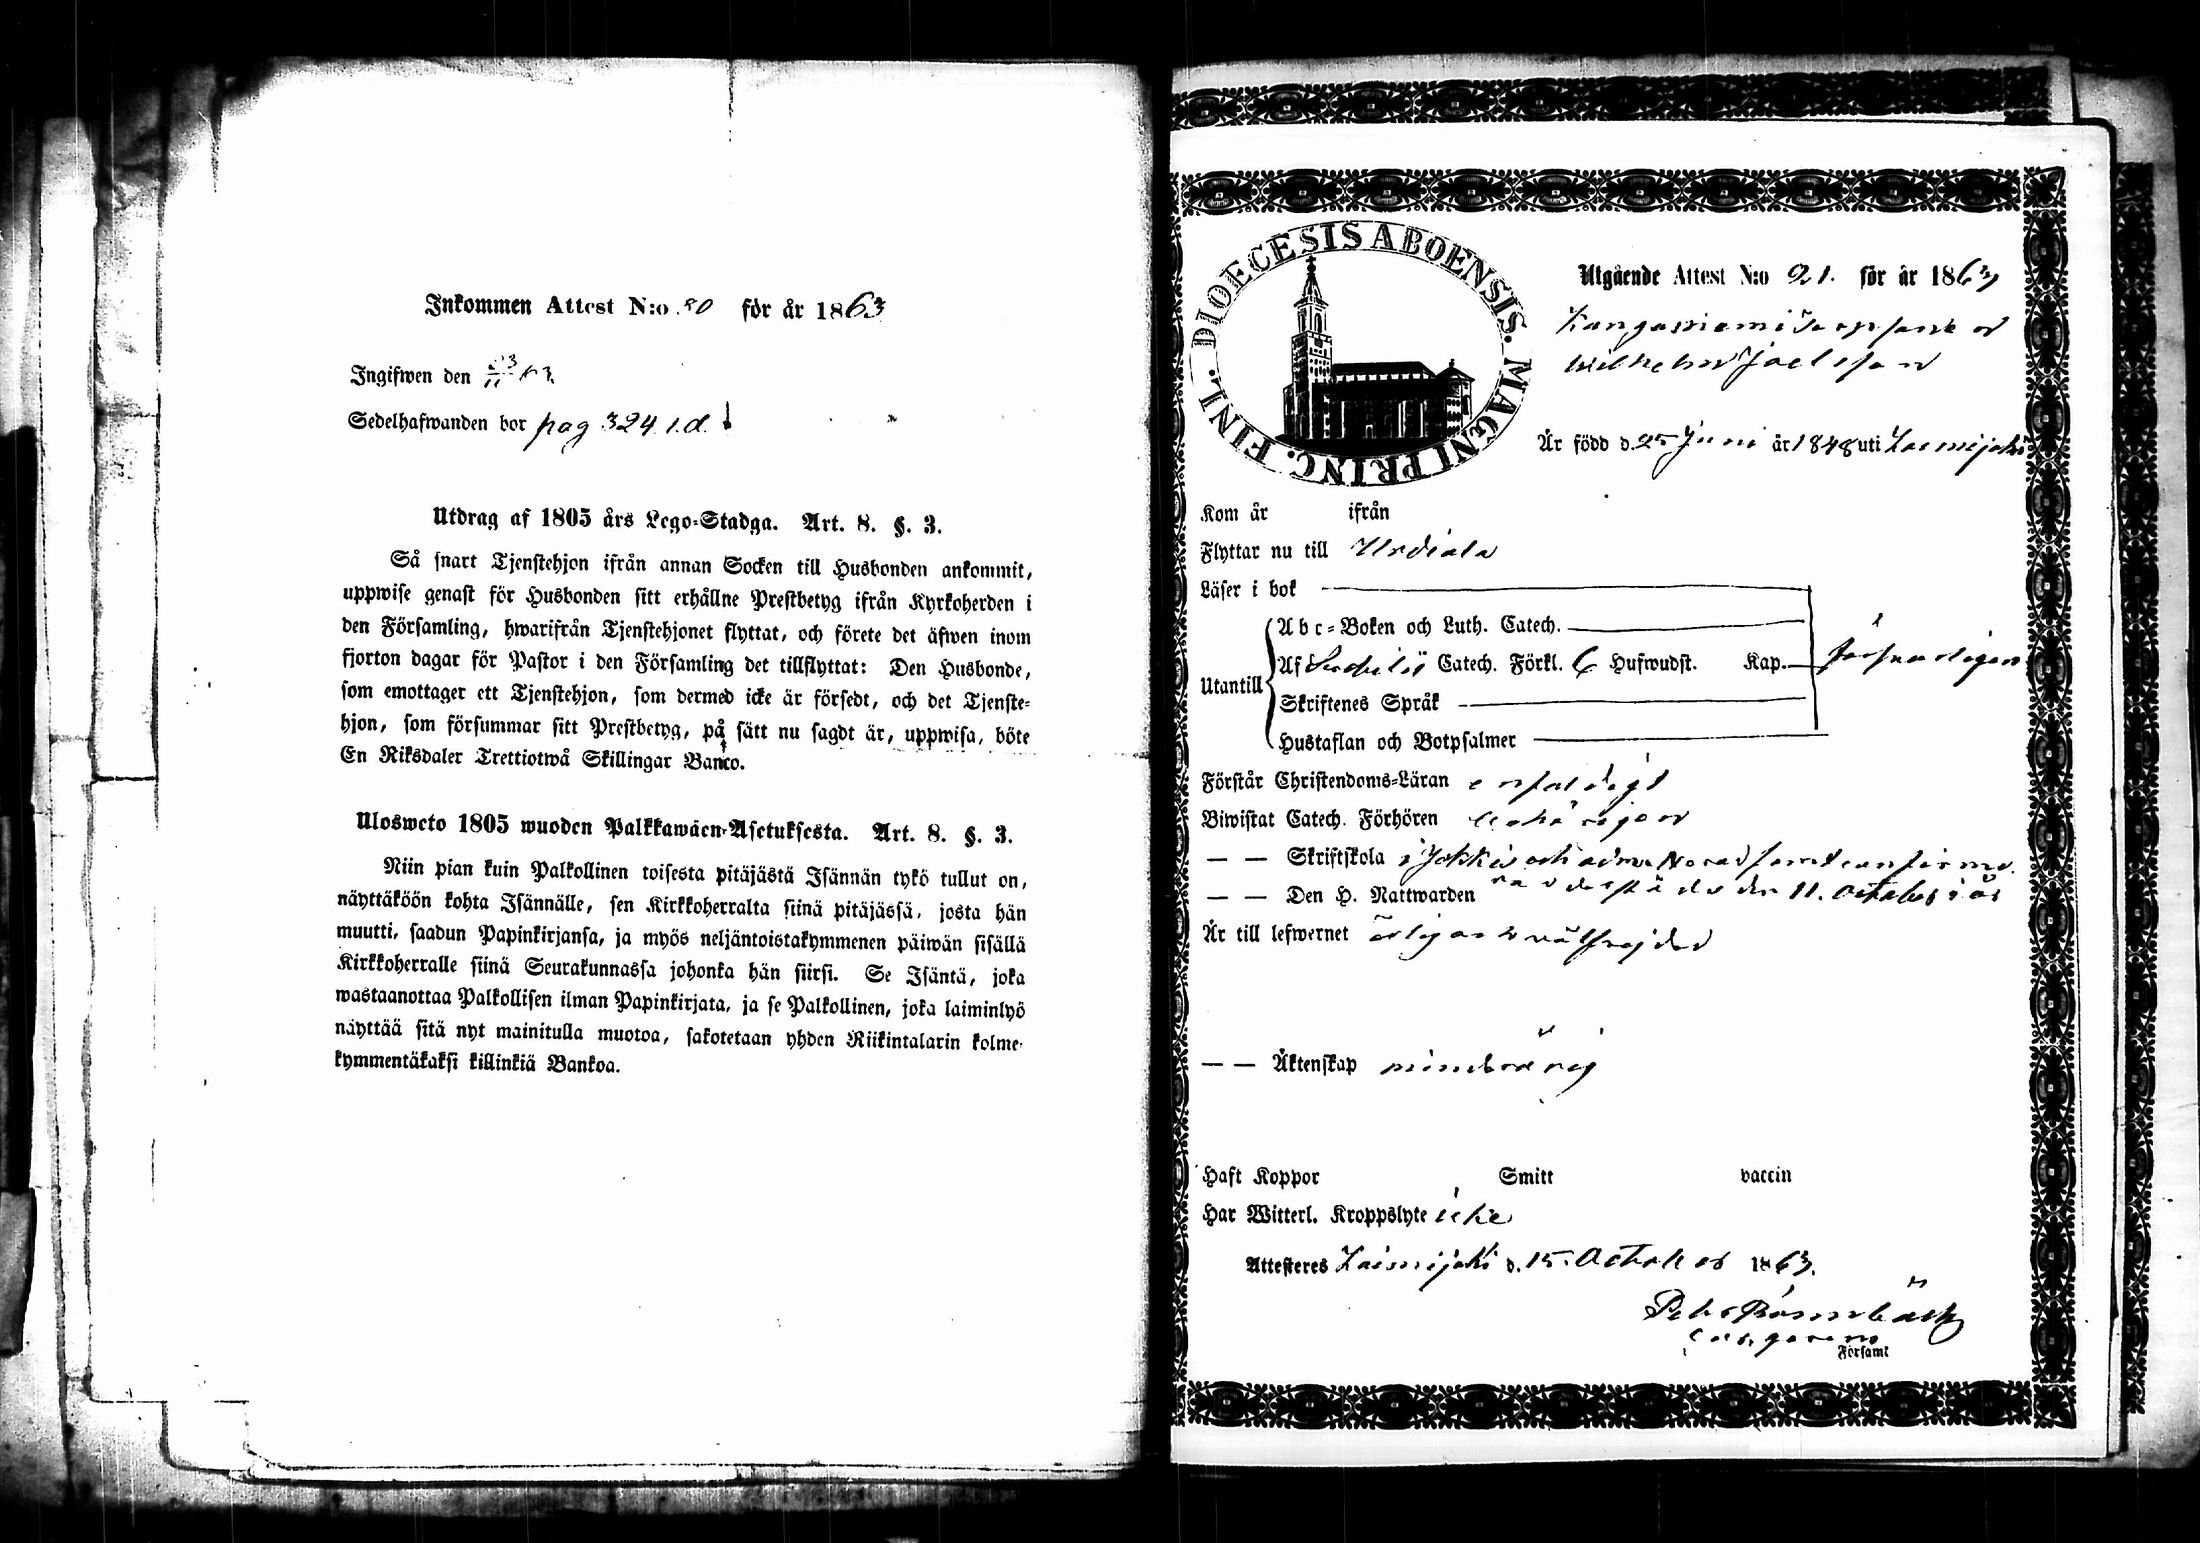 Inkommen Attest N:o 80 för år 1863
Ingifwen den 23/11 63.
Sedelhafwanden bor pag 324 i.d.
Utdrag af 1805 års Lego-Stadga. Art. 8. §. 3.
Så snart Tjenstehjon ifrån annan Socken till Husbonden ankommit,
uppwise genast för Husbonden sitt erhållne Prestbetyg ifrån Kyrkoherden i
den Församling, hwarifrån Tjenstehjonet flyttat, och förete det äfwen inom
fjorton dagar för Pastor i den Församling det tillflyttat: Den Husbonde,
som emottager ett Tjenstehjon, som dermed icke är försedt, och det Tjenste-
hjon, som försummar sitt Prestbetyg, på sätt nu sagdt är, uppwisa, böte
En Riksdaler Trettiotwå Skillingar Banco.
Ulosweto 1805 wuoden Palkkawäen-Asetuksesta. Art. 8. §. 3.
Niin pian kuin Palkollinen toisesta pitäjästä Isännän tykö tullut on,
näyttäköön kohta Isännälle, sen Kirkkoherralta siinä pitäjässä, josta hän
muutti, saadun Papinkirjansa, ja myös neljäntoistakymmenen päiwän sisällä
Kirkkoherralle siinä Seurakunnassa johonka hän siirsi. Se Isäntä, joka
wastaanottaa Palkollisen ilman Papinkirjata, ja se Palkollinen, joka laiminlyö
näyttää sitä nyt mainitulla muotoa, sakotetaan yhden Riikintalarin kolme-
kymmentäkaksi killinkiä Bankoa.
DIOECESIS ABOENSIS. MAGNI PRINC. FINL.
Utgående Attest N:o 21. för år 1863
Wilhelm Joelsson
Är född d. 25 Juni år 1848 uti Loimijoki
Kom år ifrån
Flyttar nu till Urdiala
Läser i bok
Abc-Boken och Luth. Catech.
Utantill Af Catech. Förkl. 6 Hufwudst. Kap. försvarligen
Skriftenes Språk
Hustaflan och Botpsalmer
Förstår Christendoms-Läran enfaldigt
Biwistat Catech. Förhören behörigen
— — Skriftskola i Jokkis och adm. Nattvard samt confirme-
— — Den H. Nattwarden rades den 11. October i år
Är till lefwernet ärlig och välfrejdad
— — Äktenskap minderårig
Haft Koppor Smitt vaccin
Har Witterl. Kroppslyte icke
Attesteres Loimijoki d. 15. October 1863.
Församl